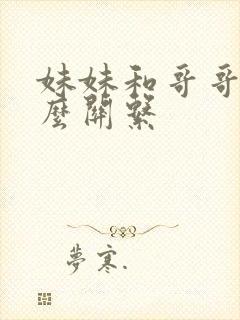 妹妹和哥哥
麼關繫
夢寒.